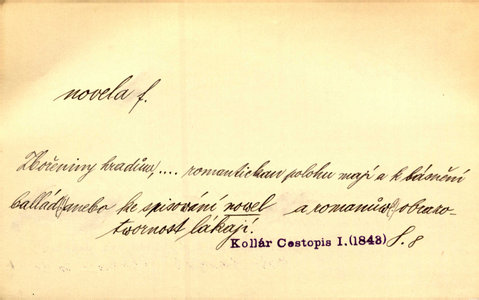 novela f.
Zbořeniny hradůw .... romantickau polohu mají a k básnění
ballád anebo ke spisování nowel a romanůw obrazo-
twornost lákají.
Kollár Cestopis I. (1843) S. 8